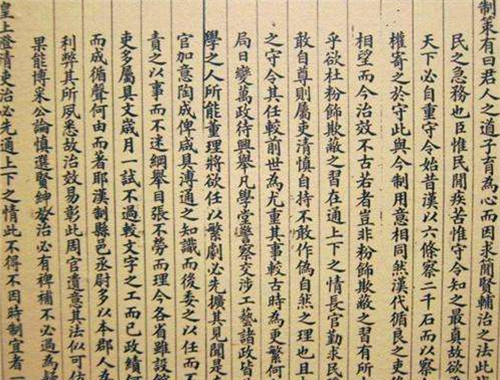 制策有曰君人之道子育為心而因求簡輔治之法此
民之急務也臣惟民間疾苦惟守令知之最真故欲
天下必自重守令始昔漢以六條察二千石而以察
權寄之於守此與今制用意相同然漢代循良之吏
相望而今治效不古若者豈非粉飾欺蔽之習有所
乎欲杜粉飾欺蔽之習在通上下之情長官勤求民
敢自尊則屬吏清慎自持不敢作偽自然之理也且
之守令其任較前世為尤重其事較古時為更繁何
局日變萬政待興舉凡學堂警察交涉工藝諸政皆
學之人所能重理將欲任以繁劇必先擴其見聞是
官加意陶成俾咸具溥通之知識而後委之以任而
責之以事而不迷綱舉目張不勞而理今各省雖設館
吏多屬具文歲月一試不過較文字之工而已政績何
而成循聲何由而著耶漢制縣邑丞尉多以本郡人為
利弊其所夙悉故治效易彰此周官遺意其法似可
果能博采公論慎選賢紳於治必有裨補不必過為
皇上澄清吏治必先通上下之情此不得不因時制宜者一